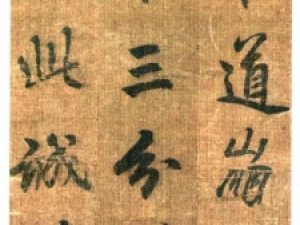 道崩
三分
此誠